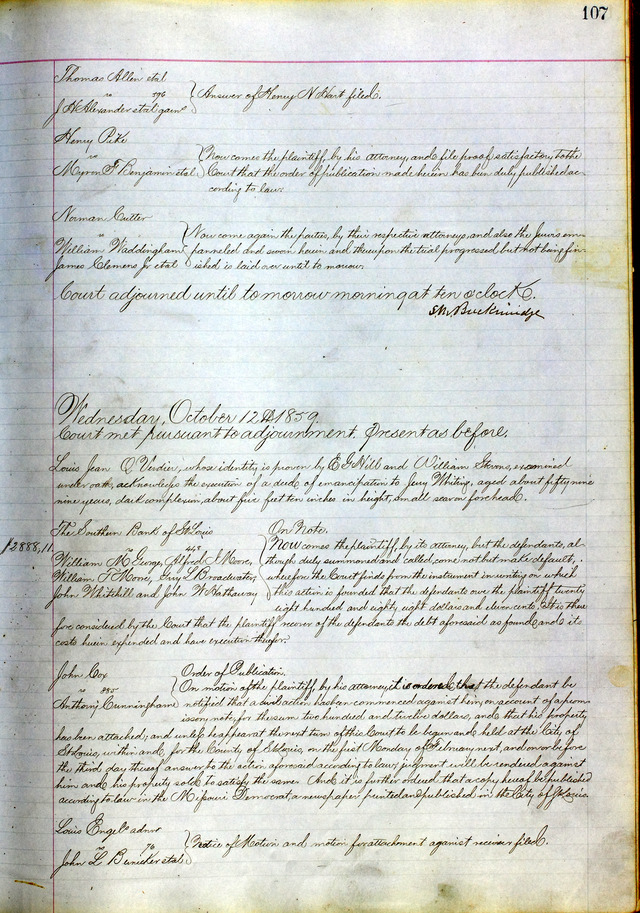 107
Thomas Allen et al
vs 196
J H Alexander et al garn
Answer of Henry N Hart filed.
Henry Pike
vs
Myron F Benjamin et al
Now comes the plaintiff, by his attorney, and file proof satisfactory to the
Court that the order of publication made herein has been duly published ac-
cording to law.
Norman Cutter
vs
William Waddingham
James Clemens Jr et al
Now come again the parties, by their respective attorneys, and also the Jurors em-
panneled and sworn herein and thereupon the trial progressed but not being fin-
ished is laid over until to morrow.
Court adjourned until to morrow morning at ten o'clock.
Wednesday, October 12th 1859
Court met pursuant to adjournment. Present as before.
Louis Jean whose identity is proven by E G Hill and William examined
under oath, acknowledges the execution of a deed of emancipation to Jerry Whiting, aged about fifty nine
nine years, dark complexion, about five feet ten inches in height, small scar on forehead.
The Southern Bank of St Louis
vs 448
William McGeorge, Alfred I Moore,
William T Moore, L Broadwater,
John Whitehill and John W Hathaway
$2888,11
On Note.
Now comes the plaintiff, by its attorney, but the defendants, al-
though duly summoned and called, come not but make default,
wherefore the Court finds from the instrument in writing on which
this action is founded that the defendants owe the plaintiff twenty
eight hundred and eighty eight dollars and eleven cents. It is there
fore considered by the Court that the plaintiff recover of the defendants the debt aforesaid as found, and its
costs herein expended and have execution therefor.
John Cox
vs
Anthony Cunningham
Order of Publication.
On motion of the plaintiff, by his attorney, it is ordered, that the defendant be
notified that a civil action has been commenced against him, on account of a prom-
issory note, for the sum two hundred and twelve dollars, and that his property
has been attached; and unless he appear at the next term of this Court to be begun and held at the City of
St Louis, within and for the County of St Louis, on the first Monday of February next, and on or before
the third day thereof answer to the action aforesaid according to law, judgment will be rendered against
him and his property sold to satisfy the same. And it is further ordered that a copy hereof be published
according to law in the Missouri Democrat, a newspaper printed and published in the City of St Louis.
Louis Engel's admr
vs 76
John L et al
Notice of Motion and motion for attachment against receiver filed.